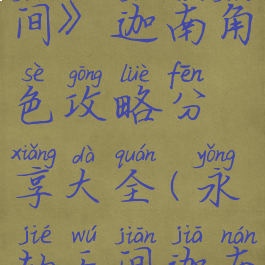 间》迦南角
sè gōng lüè fēn
色攻略分
xiǎng dà quán yǒng
享大全(永
jié wú jiān jiā nán
劫无间迦南